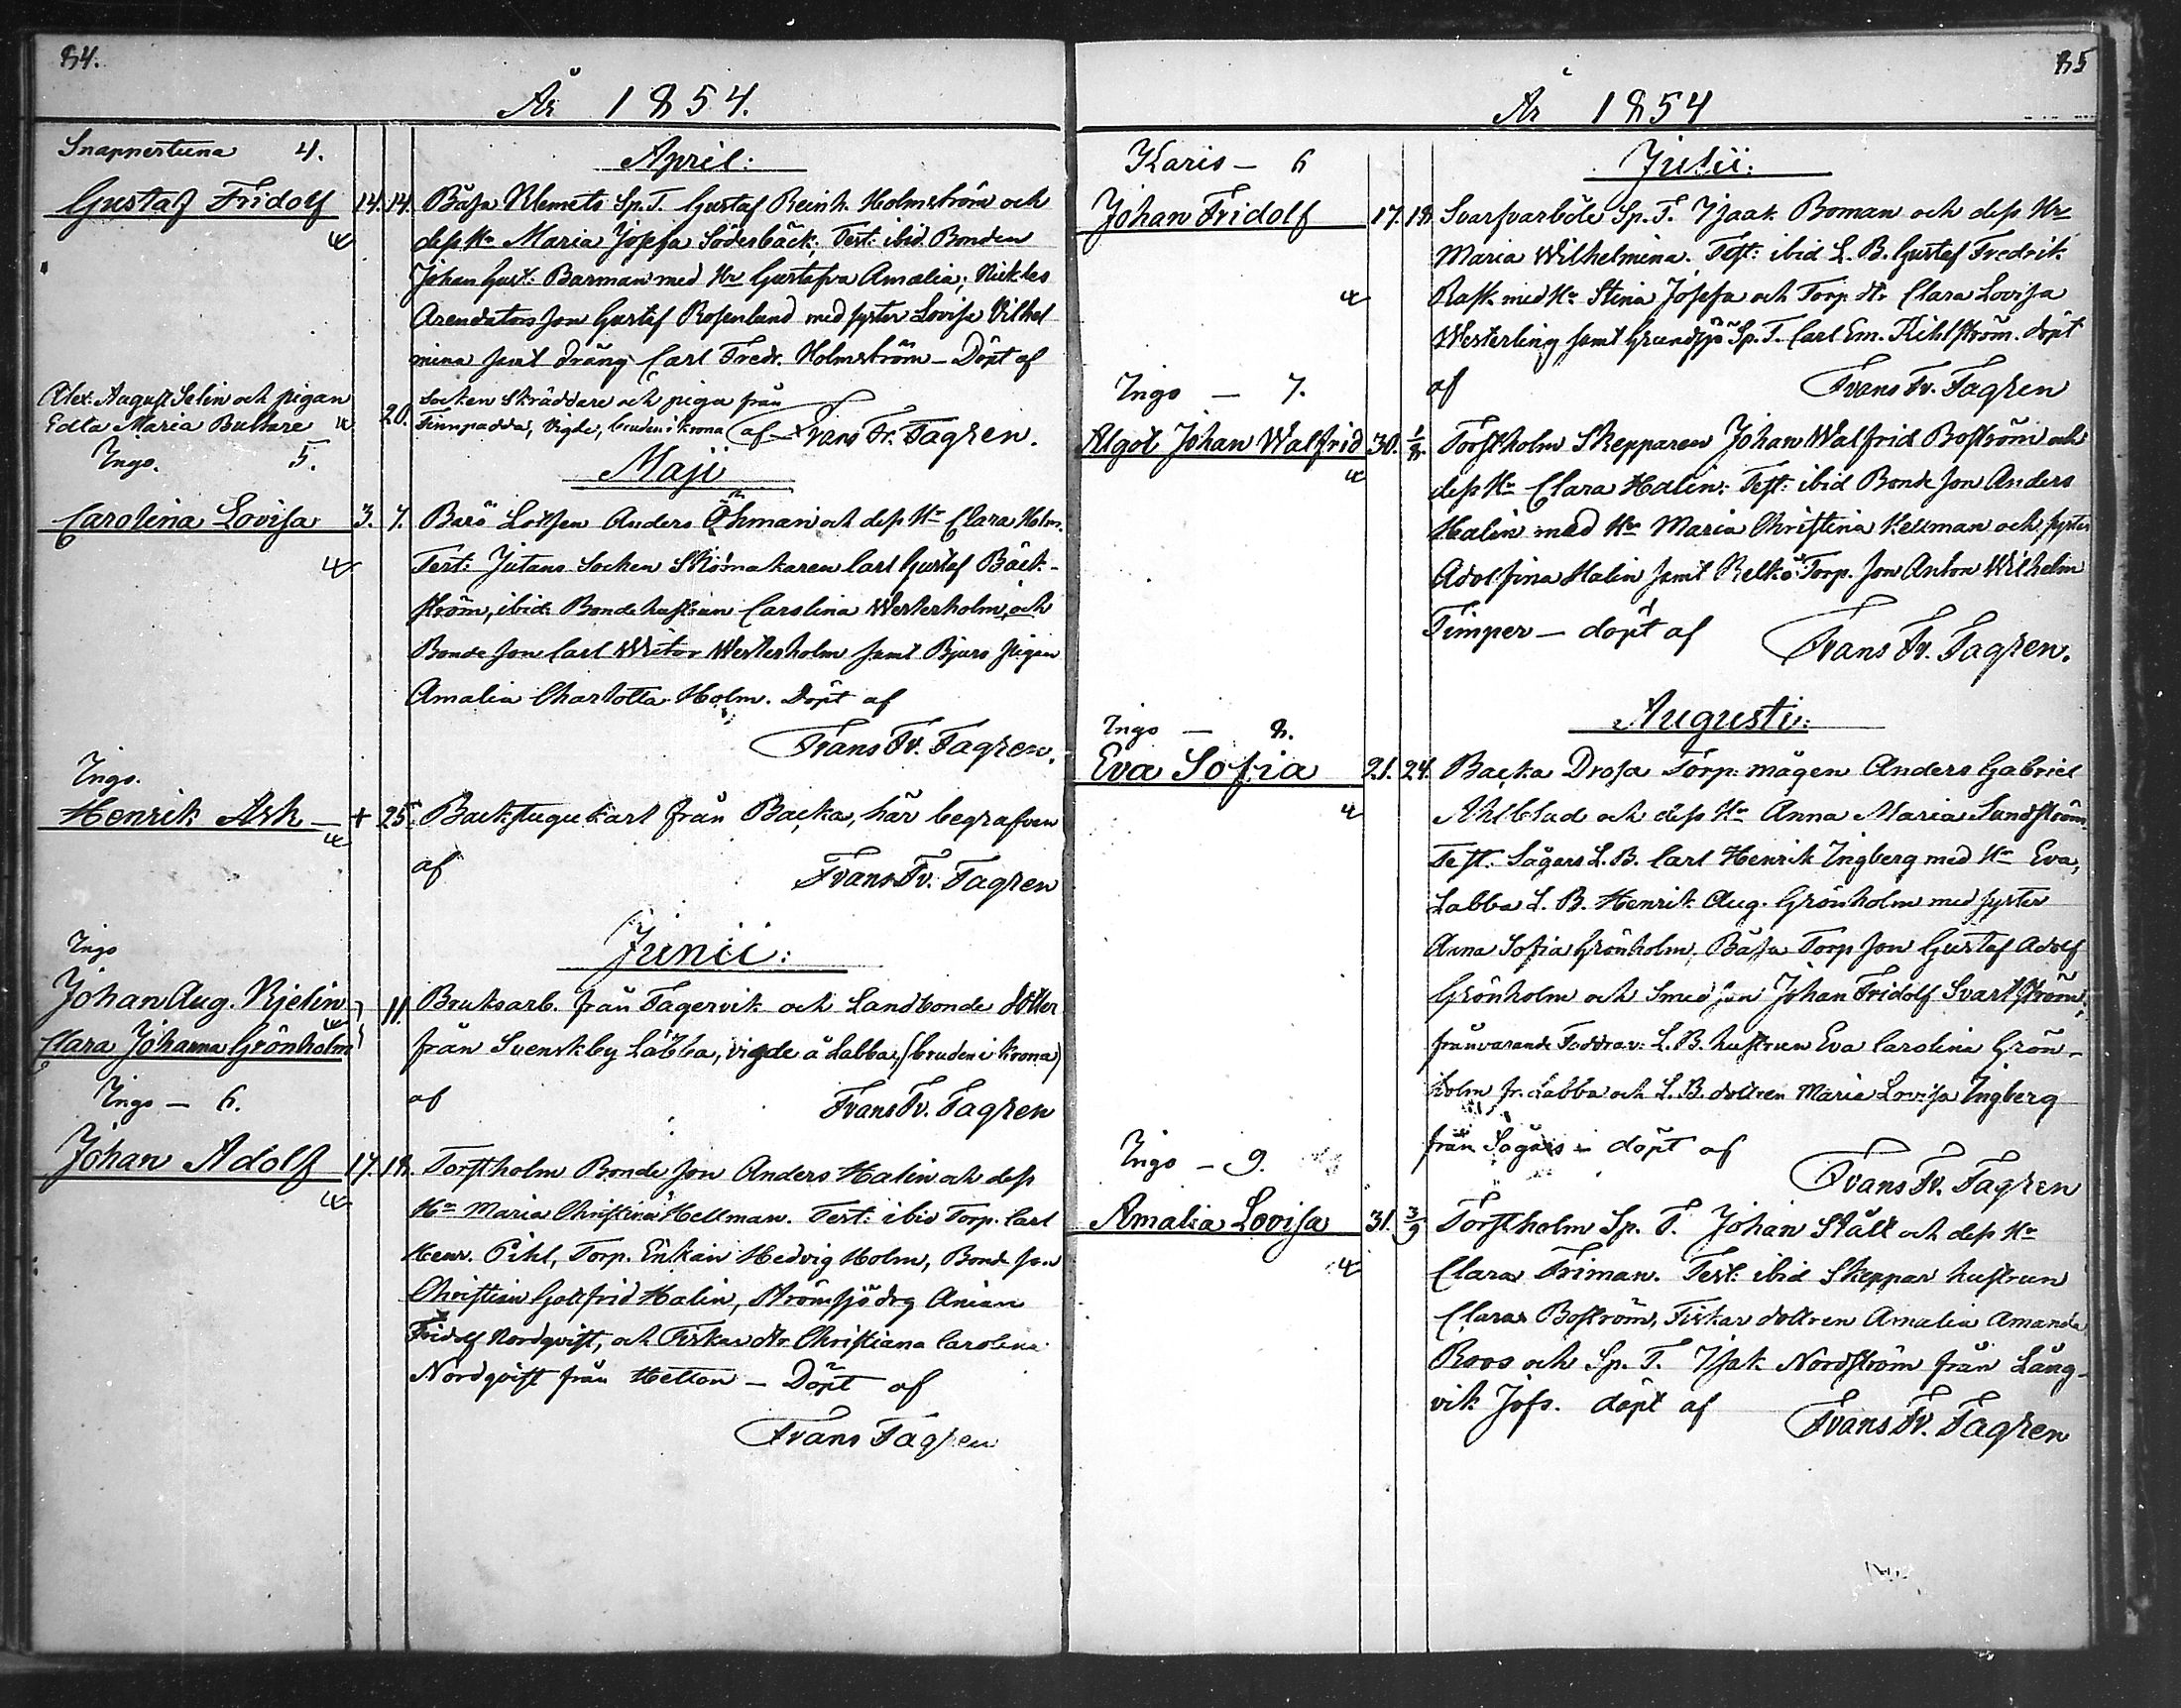 84.
År 1854.
Snappertuna 4.
April:
Gustaf Fridolf 14. 14. Båsa Klemets Sp. T. Gustaf Reinh. Holmström och
dess Hu Maria Josefa Söderbäck; Test: ibid. Bonden
Johan Gust. Barman med Hu Gustafva Amalia; Nickles
Arendators son Gustaf Rosenlund med syster Lovisa Vilhel
mina samt dräng Carl Fredr. Holmström — Döpt af
Alex. August Selin och pigan
Edla Maria Bullare 20. Socken Skräddare och piga från
Finnpadda, Vigde, bruden i krona af Frans Fr. Fagren.
Ingo. 5.
Maji
Carolina Lovisa 3. 7. Barö Lotsen Anders Öhman och dess Hu Clara Holm.
Test: Jutans Socken Skomakaren Carl Gustaf Bäck-
ström, ibid. Bondehustrun Carolina Westerholm, och
Bonde son Carl Wictor Westerholm samt Bjurs pigan
Amalia Charlotta Holm. Döpt af
Frans Fr. Fagren.
Ingo.
Henrik Ask — + 25. Backstugukarl från Backa, här begrafven
af Frans Fr. Fagren
Junii:
Ingo
Johan Aug. Kjelin
Clara Johanna Grönholm 11. Bruksarb. från Fagervik och Landbonde dotter
från Svenskby Labba, vigde å Labba, (bruden i krona)
af Frans Fr. Fagren
Ingo — 6.
Johan Adolf 17. 18. Torstholm Bonde son Anders Halin och dess
Hu Maria Christina Hellman. Test: ibid Torp. Carl
Henr. Pihl, Torp. Enkan Hedvig Holm, Bonde son
Christian Gottfrid Halin, Strömsjö drg Anian
Fridolf Nordqvist, och Fiskar dtr Christiana Carolina
Nordqvist från Hetton — Döpt af
Frans Fagren
85
År 1854
Karis — 6
Julii:
Johan Fridolf 17. 18. Svarfvarböle Sp. T. Isaak Boman och dess Hu
Maria Wilhelmina. Test: ibid L. B. Gustaf Fredrik
Rask med Hu Stina Josefa och Torp. dtr Clara Lovisa
Westerling samt Grundsjö Sp. T. Carl Em. Kihlström. döpt
af Frans Fr. Fagren
Ingo — 7.
Algot Johan Walfrid 30. 1/8. Torstholm Skepparen Johan Walfrid Boström och
dess Hu Clara Halin: Test: ibid Bonde son Anders
Halin med Hu Maria Christina Hellman och syster
Adolfina Halin samt Relkö Torp. son Anton Wilhelm
Timper — döpt af
Frans Fr. Fagren.
Augusti:
Ingo — 8.
Eva Sofia 21. 24. Backa Drosa Torp. mågen Anders Gabriel
Ahlblad och dess Hu Anna Maria Sundström.
Test. Sågars L. B. Carl Henrik Ingberg med Hu Eva,
Labba L. B. Henrik Aug. Grönholm med syster
Anna Sofia Grönholm, Båsa Torp son Gustaf Adolf
Grönholm och Smed son Johan Fridolf Svartström;
frånvarande Faddrar: L. B. hustrun Eva Carolina Grön-
holm fr. Labba och L. B. dottren Maria Lovisa Ingberg
från Sågars — döpt af
Frans Fr. Fagren
Ingo — 9.
Amalia Lovisa 31. 3/9 Torstholm Sp. T. Johan Stålt och dess Hu
Clara Friman. Test: ibid Skeppar hustrun
Clara Boström, Fiskar dottren Amalia Amanda
Roos och Sp. T. Isak Nordström från Lång-
vik Jofs. döpt af Frans Fr. Fagren